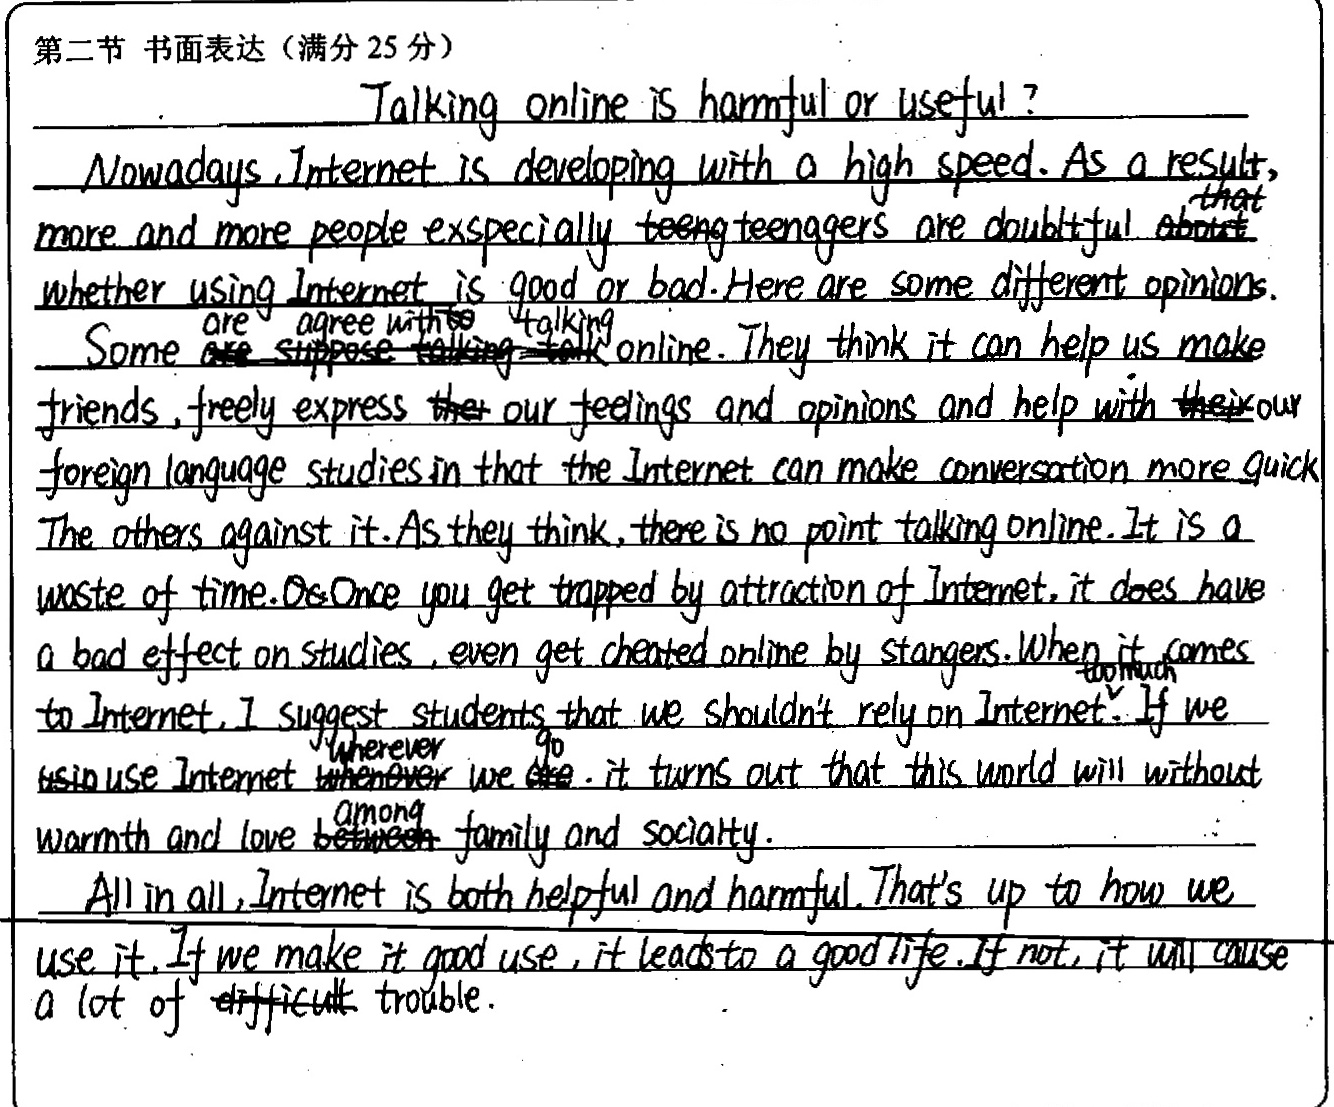 第二节 书面表达（满分 25 分）
Talking online is harmful or useful?
Nowadays, Internet is developing with a high speed. As a result,
more and more people exspecially teenagers are doubltful that
whether using Internet is good or bad. Here are some different opinions.
Some are agree with talking online. They think it can help us make
friends, freely express our feelings and opinions and help with our
foreign language studies in that the Internet can make conversation more quick
The others against it. As they think, there is no point talking online. It is a
waste of time. Once you get trapped by attraction of Internet, it does have
a bad effect on studies, even get cheated online by stangers. When it comes
to Internet, I suggest students that we shouldn't rely on Internet too much. If we
use Internet wherever we go. it turns out that this world will without
warmth and love among family and socialty.
All in all, Internet is both helpful and harmful. That's up to how we
use it. If we make it good use, it leads to a good life. If not, it will cause
a lot of trouble.